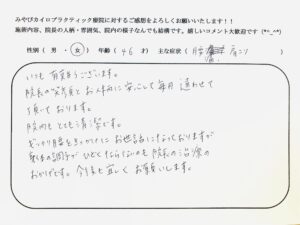 みやびカイロプラクティック療院に対するご感想をよろしくお願いいたします！！
施術内容、院長の人柄・雰囲気、院内の様子なんでも結構です。嬉しいコメント大歓迎です (*^_^*)
性別 ( 男 ・ 女 ) 年齢 ( 46 才 ) 主な症状 ( 腰痛 肩コリ
いつも有難うございます。
院長の笑顔とお人柄に安心して毎月通わせて
頂いております。
院内もとても清潔です。
ぎっくり腰をきっかけにお世話になっておりますが
身体の調子がひどくならないのも院長の治療の
おかげです。今後も宜しくお願いします。